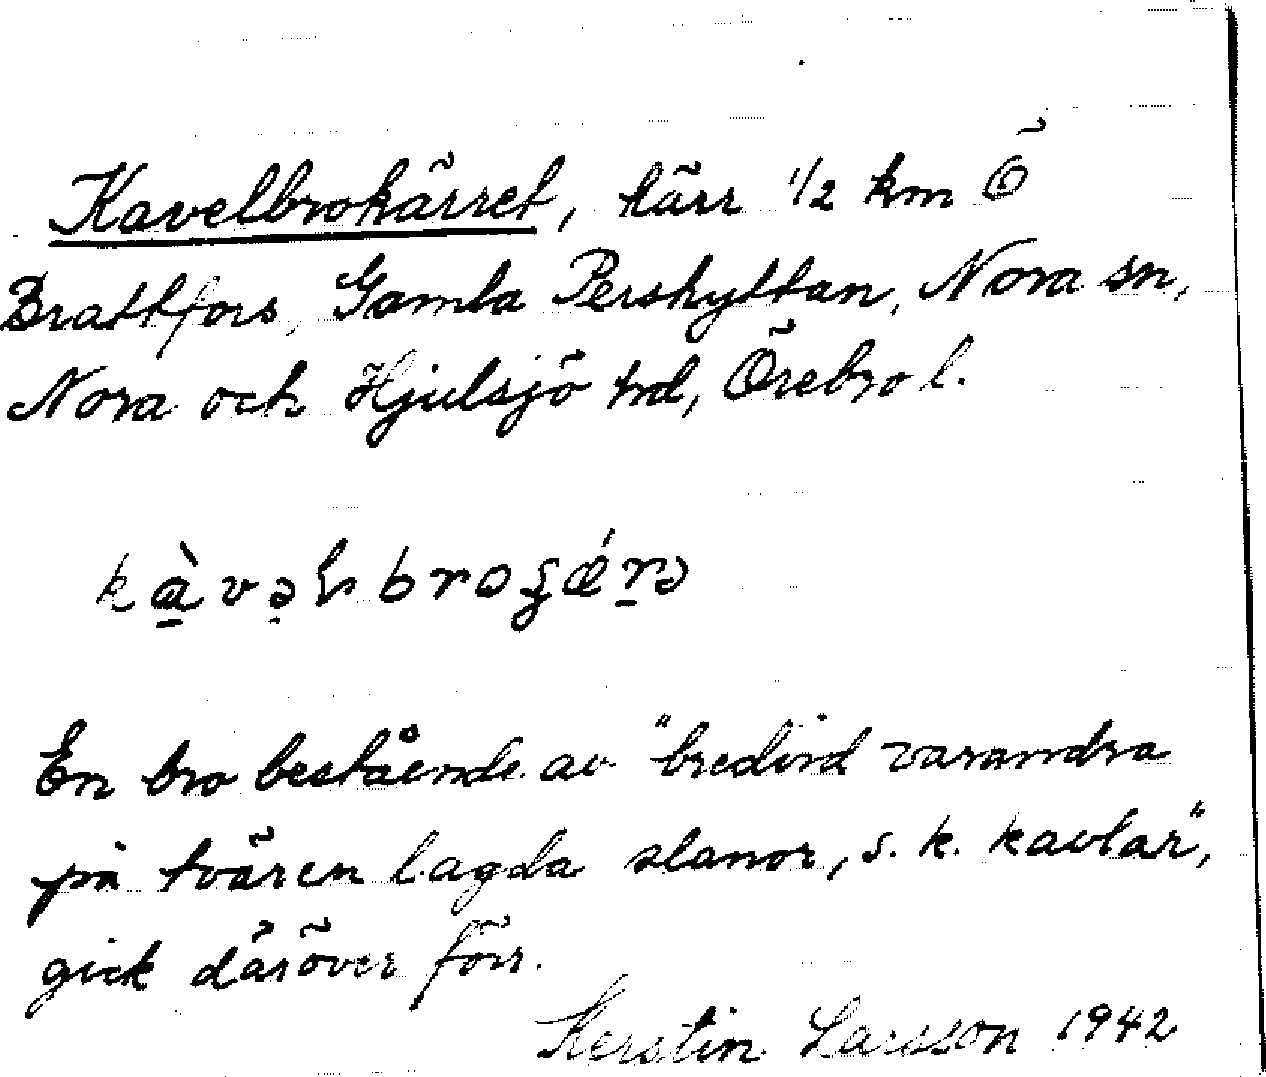 Kavelbrokärret, kärr 1/2 km Ö
Brattfors, Gamla Pershyttan, Nora sn,
Nora och Hjulsjö trd, Örebro l.
En bro bestående av "bredvid varandra
på tvären lagda slanor, s.k. kavlar",
gick däröver förr.
Kerstin Larsson 1942